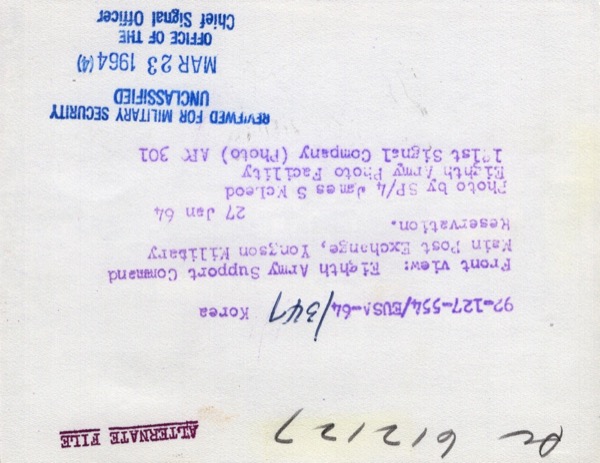 SC 612127
ALTERNATE FILE
92-127-554/EUSA-64/347 Korea
Front view: Eighth Army Support Command
Main Post Exchange, Yongson Military
Reservation.
27 Jan 64
Photo by SP/4 James S McLeod
Eighth Army Photo Facility
Signal Company (Photo) APO 301
REVIEWED FOR MILITARY SECURITY
UNCLASSIFIED
MAR 23 1964 (4)
OFFICE OF THE
Chief Signal Officer